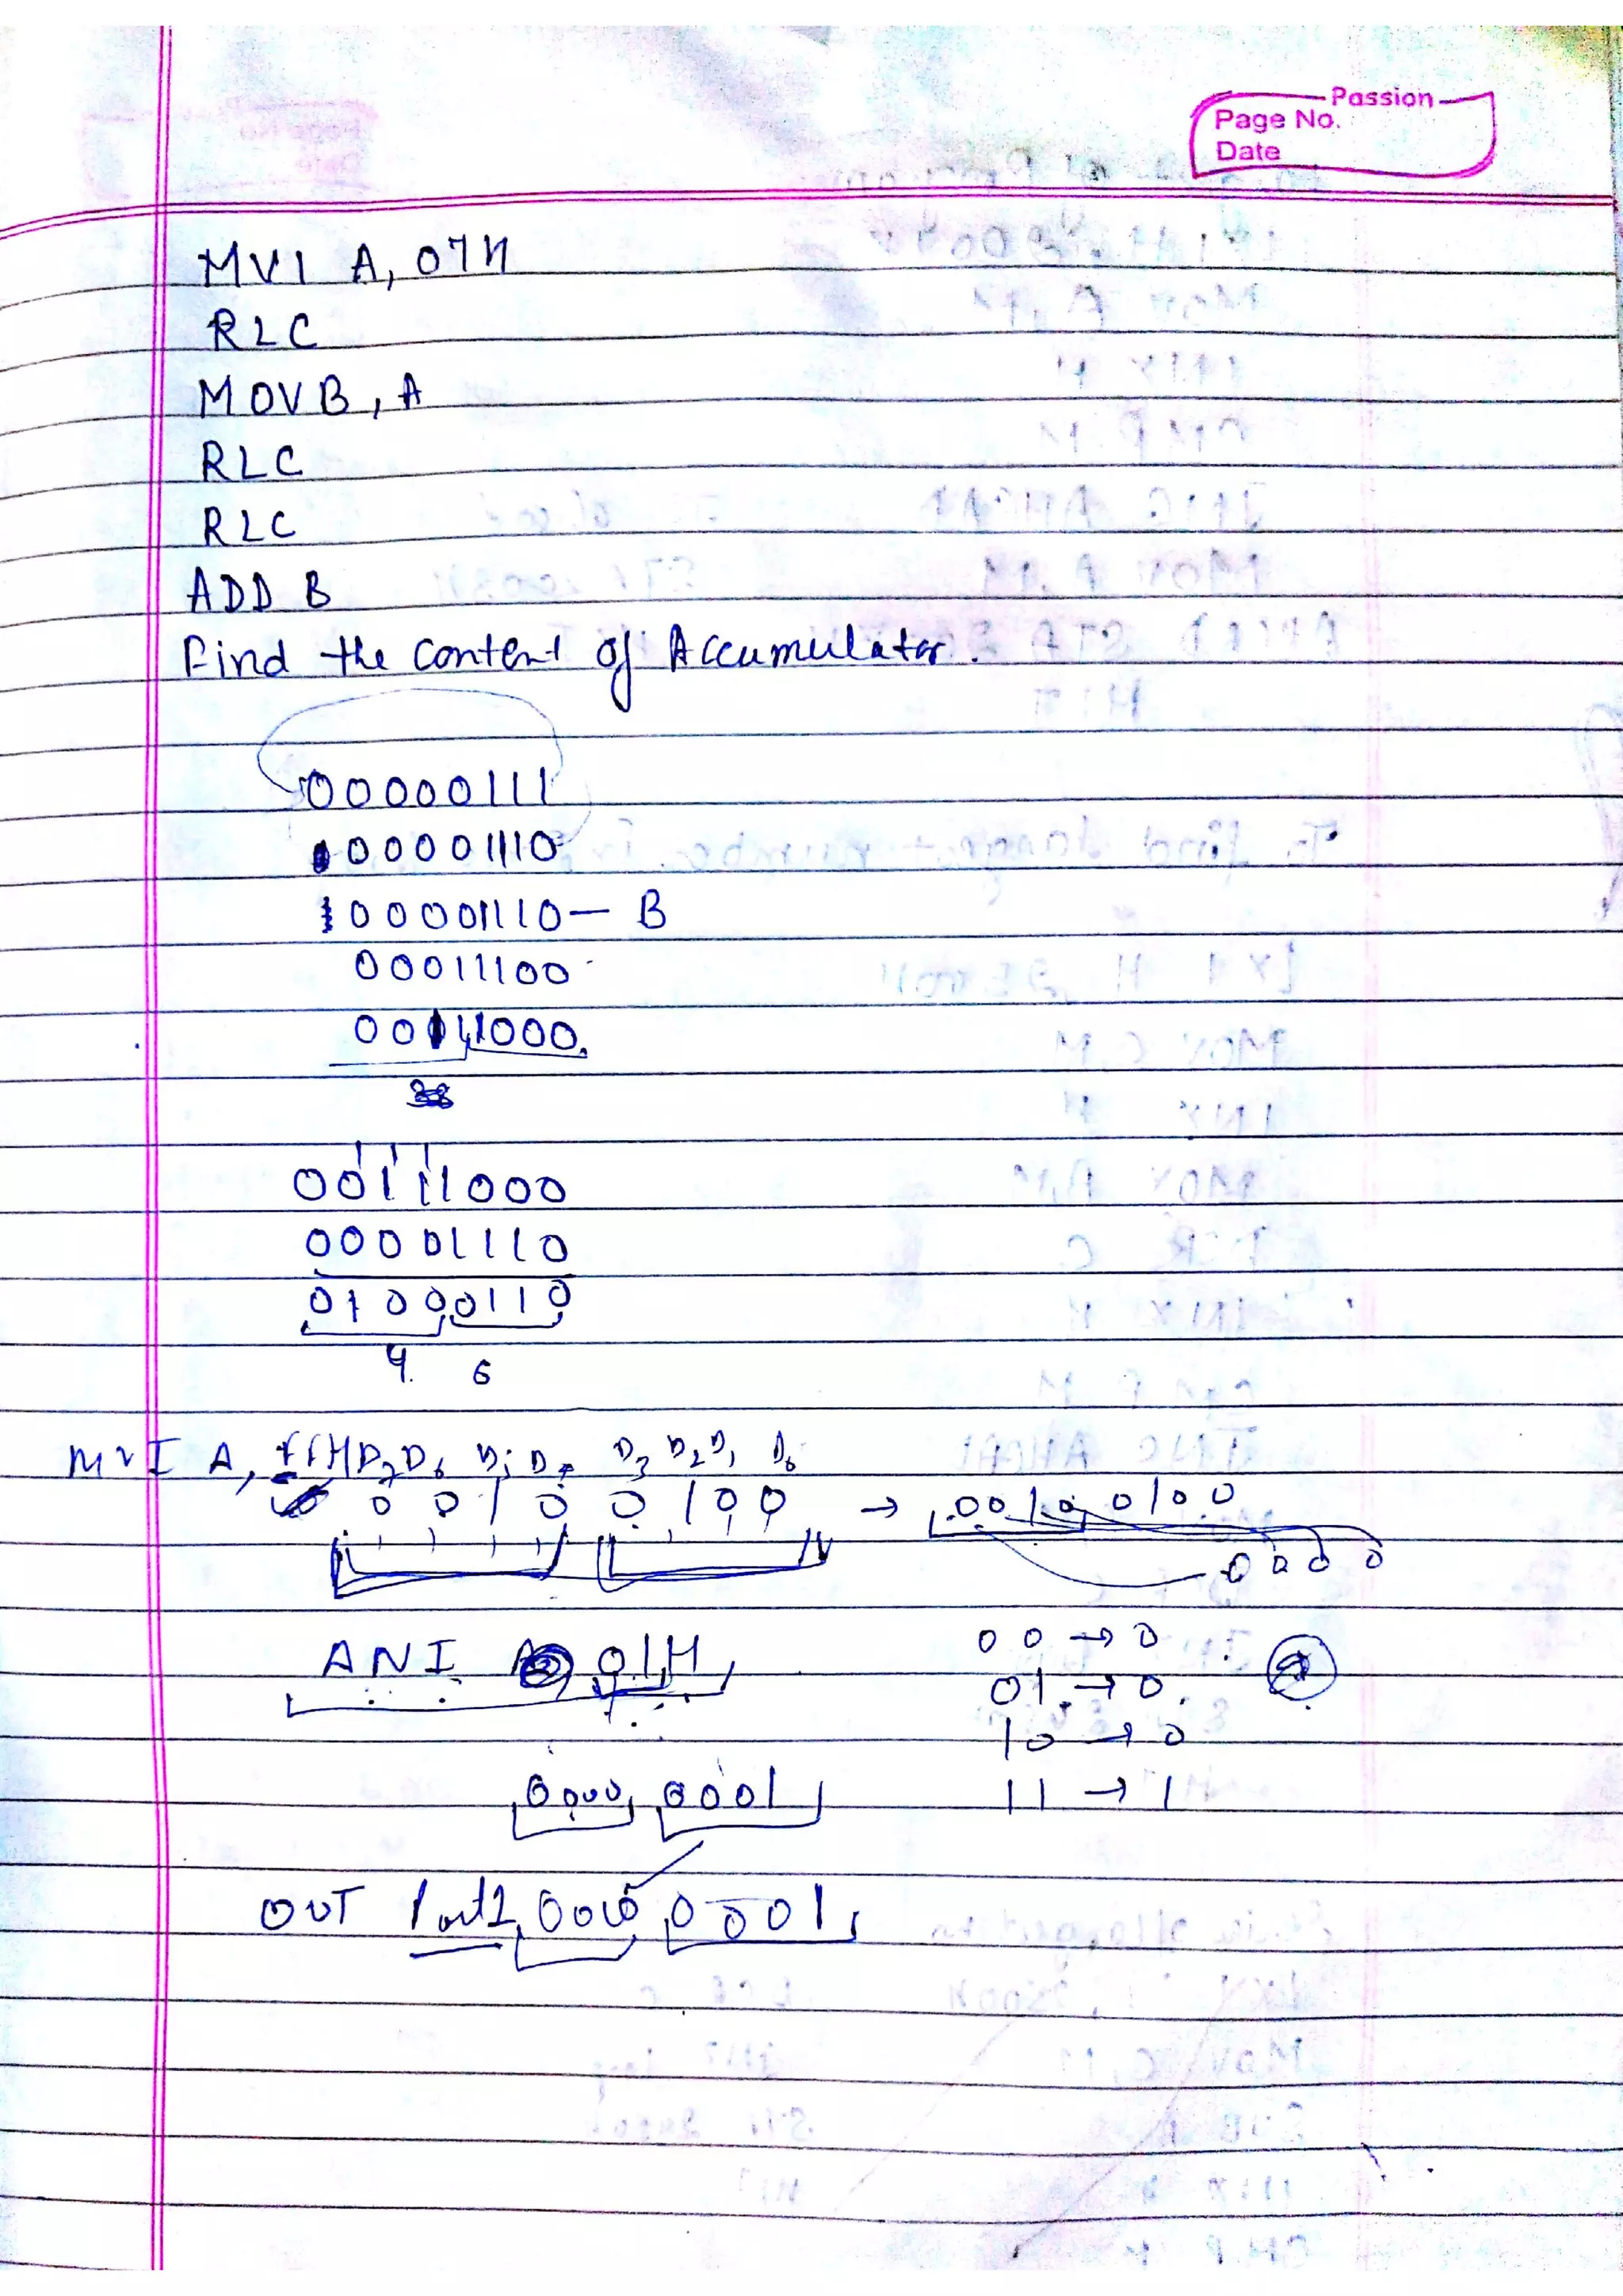 Passion
Page No.
Date
MVI A, 07H
RLC
MOV B, A
RLC
RLC
ADD B
Find the content of Accumulator.
00000111
00001110
00001110 — B
00011100
00111000
38
1 1 1
00111000
00001110
01000110
4 6
MVI A, FFH D7 D6 D5 D4 D3 D2 D1 D0
0 0 1 0 0 1 0 0 → 0 0 1 0 0 1 0 0
0 0 0 0
ANI 01H
0 0 → 0
0 1 → 0
1 0 → 0
0000 0001
1 1 → 1
OUT Port1, 0000 0001